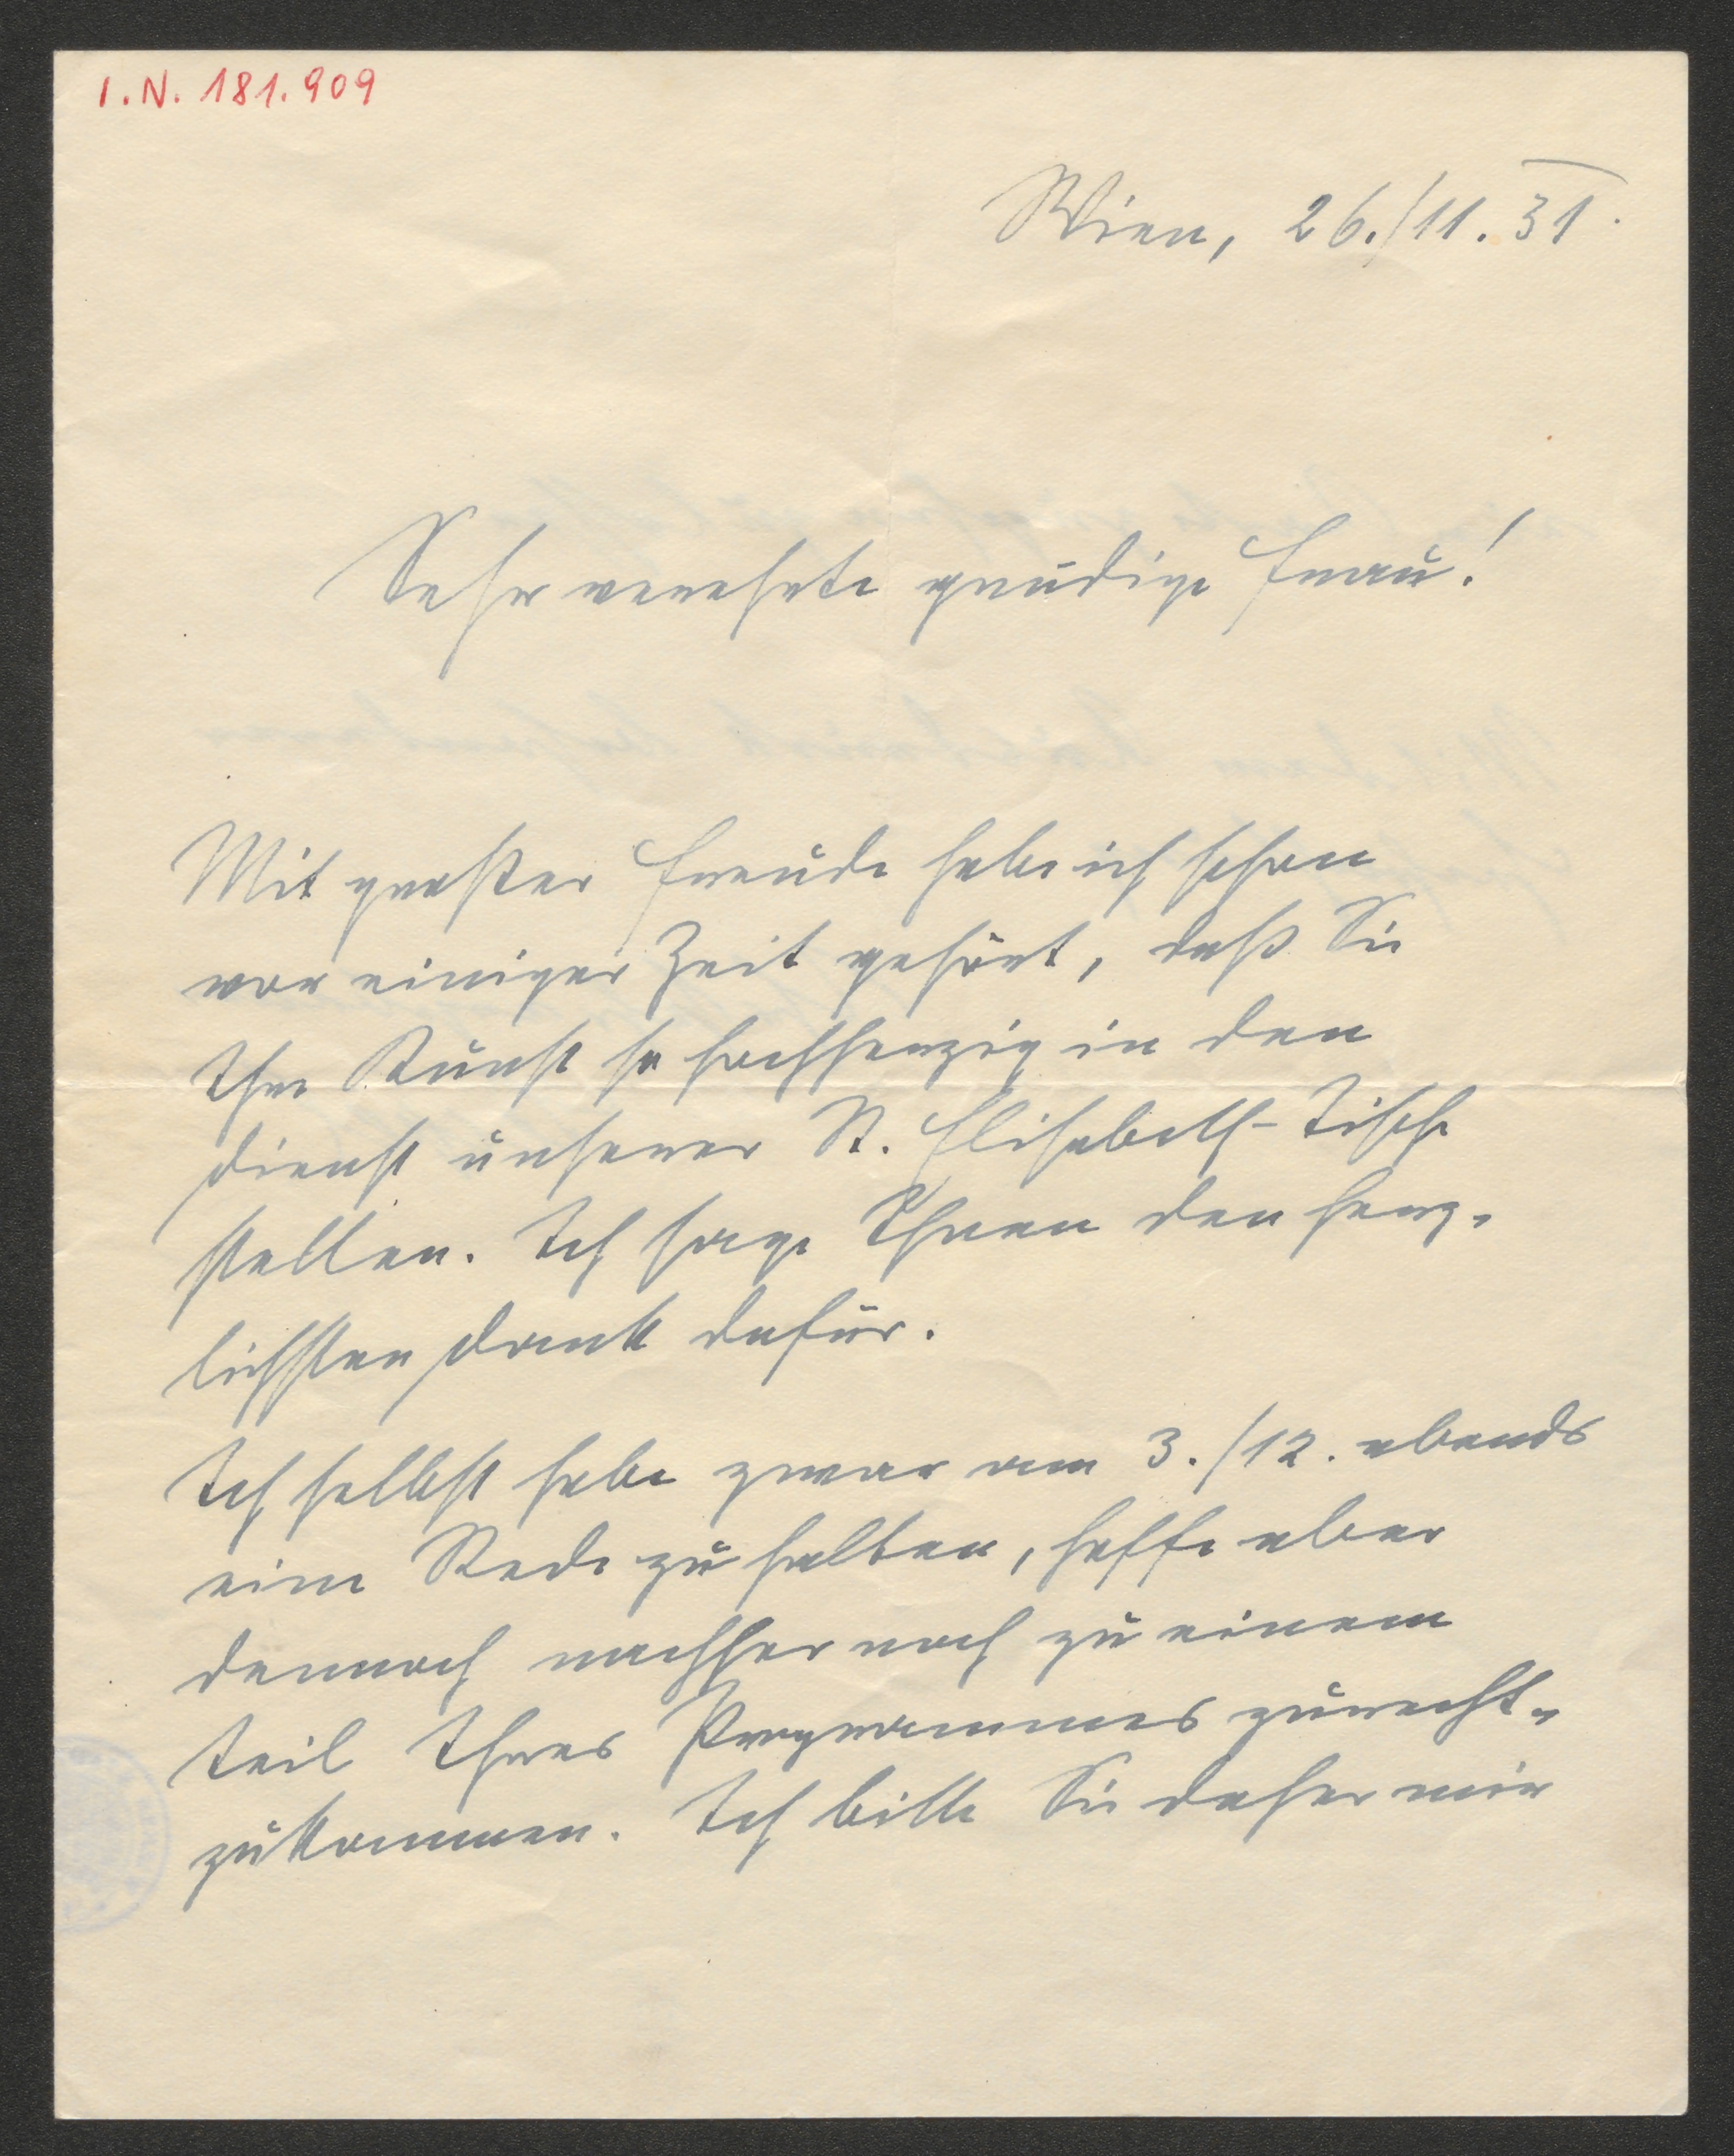 I.N. 181.909
Wien, 26./11. 31.
Sehr verehrte gnädige Frau!
Mit großer Freude habe ich schon
vor einiger Zeit gehört, daß Sie
Ihre Kunst so hochherzig in den
Dienst unserer St. Elisabeth-Tische
stellen. Ich sage Ihnen den herz-
lichsten Dank dafür.
Ich selbst habe zwar am 3./12. abends
eine Rede zu halten, hoffe aber
dennoch nachher noch zu einem
Teil Ihres Programmes zurecht-
zukommen. Ich bitte Sie daher mir